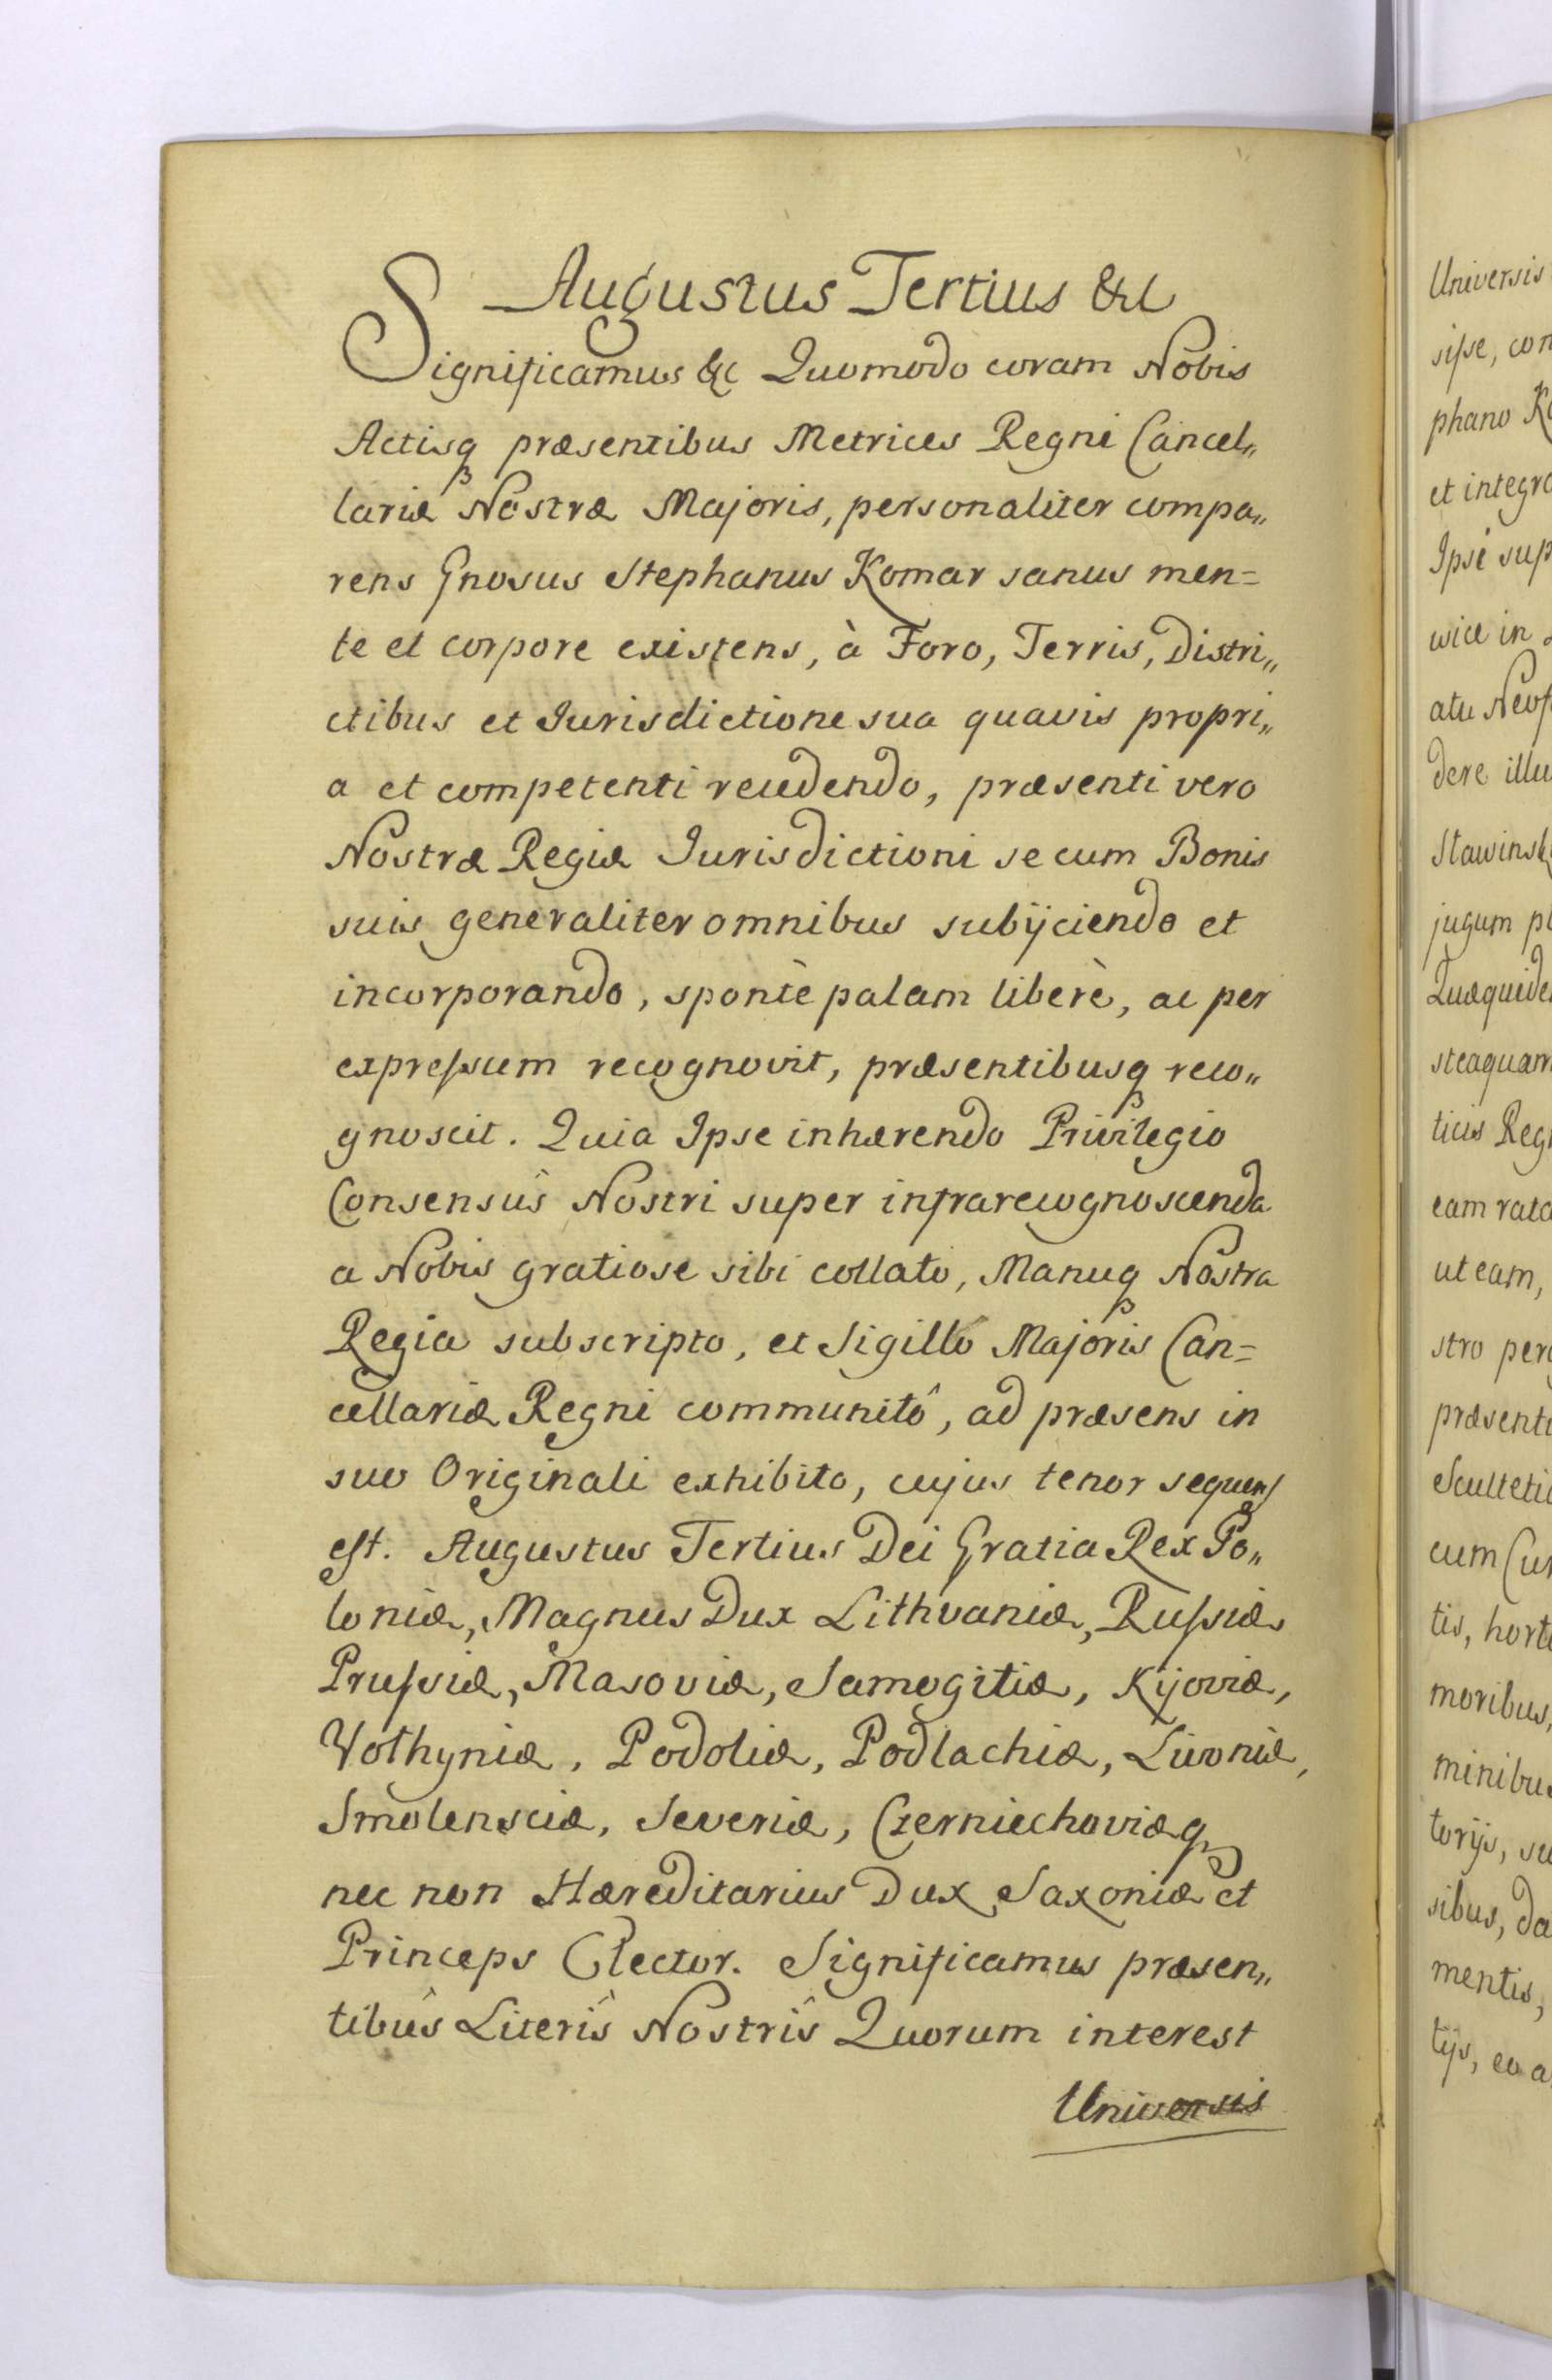 Augustus Tertius &c
Significamus &c Quomodo coram Nobis
Actisq præsentibus Metrices Regni Cancel„
lariæ Nostræ Majoris, personaliter compa„
rens Gnosus Stephanus Komar sanus men=
te et corpore existens, à Foro, Terris, Distri„
ctibus et Jurisdictione sua quavis propri„
a et competenti recedendo, præsenti vero
Nostræ Regiæ Jurisdictioni se cum Bonis
suis generaliter omnibus subijciendo et
incorporando, spontè palam liberè, ac per
expressum recognovit, præsentibusq reco„
gnoscit. Quia Ipse inhærendo Privilegio
Consensûs Nostri super infrarecognoscenda
a Nobis gratiose sibi collato, Manuq Nostra
Regia subscripto, et Sigillo Majoris Can=
cellariæ Regni communitô, ad præsens in
suo Originali exhibito, cujus tenor sequens
est. Augustus Tertius Dei Gratia Rex Po„
loniæ, Magnus Dux Lithvaniæ, Russiæ
Prussiæ, Masoviæ, Samogitiæ, Kijoviæ,
Volhyniæ, Podoliæ, Podlachiæ, Livoniæ,
Smolensciæ, Severiæ, Czerniechoviæq
nec non Hæreditarius Dux Saxoniæ et
Princeps Elector. Significamus præsen„
tibûs Literîs Nostrîs Quorum interest
Universis
Universis
sisse, con
phano Ko
et integra
Ipsi sup
wice in
atu Novo
dere illu
Stawinsk
jugum pl
Quæquide
steaquam
ticis Reg
eam rata
ut eam,
stro per
præsenti
Sculteti
cum Cur
tis, horti
moribus,
minibus
torijs, su
sibus, da
mentis,
tijs, eo a